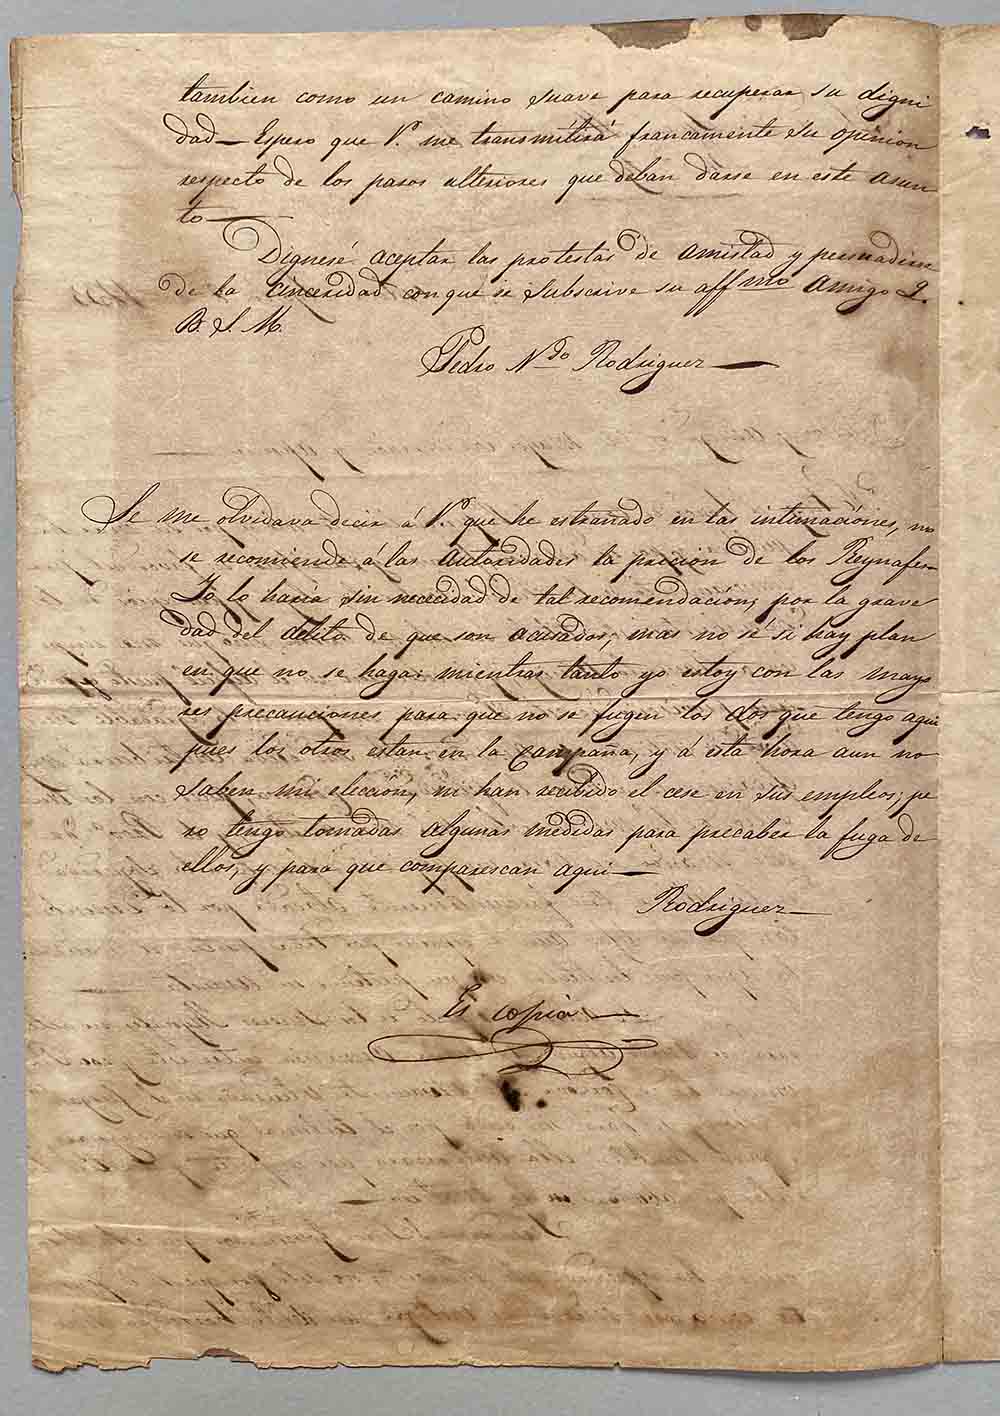 tambien como un camino suave para recuperar su digni
dad — Espero que V. me transmitirá francamente su opinion
respecto de los pasos ulteriores que deban darse en este asun
to —
Dignese aceptar las protestas de amistad y persuadirse
de la cinceridad con que se subscrive su affmo Amigo Q.
B. S. M.
Pedro N.do Rodriguez —
Se me olvidava decir á V. que he estrañado en las intimaciones, no
se recomiende á las Autoridades la pricion de los Reynafes —
Yo lo haria sin nececidad de tal recomendacion, por la grave
dad del delito de que son acusados; mas no sé si hay plan
en que no se haga: mientras tanto yo estoy con las mayo
res precauciones para que no se fugen los dos que tengo aqui
pues los otros estan en la Campaña, y á esta hora aun no
saben mi elección, ni han recibido el cese en sus empleos; pe
ro tengo tomadas algunas medidas para precaber la fuga de
ellos, y para que comparescan aqui —
Rodriguez —
Es copia —